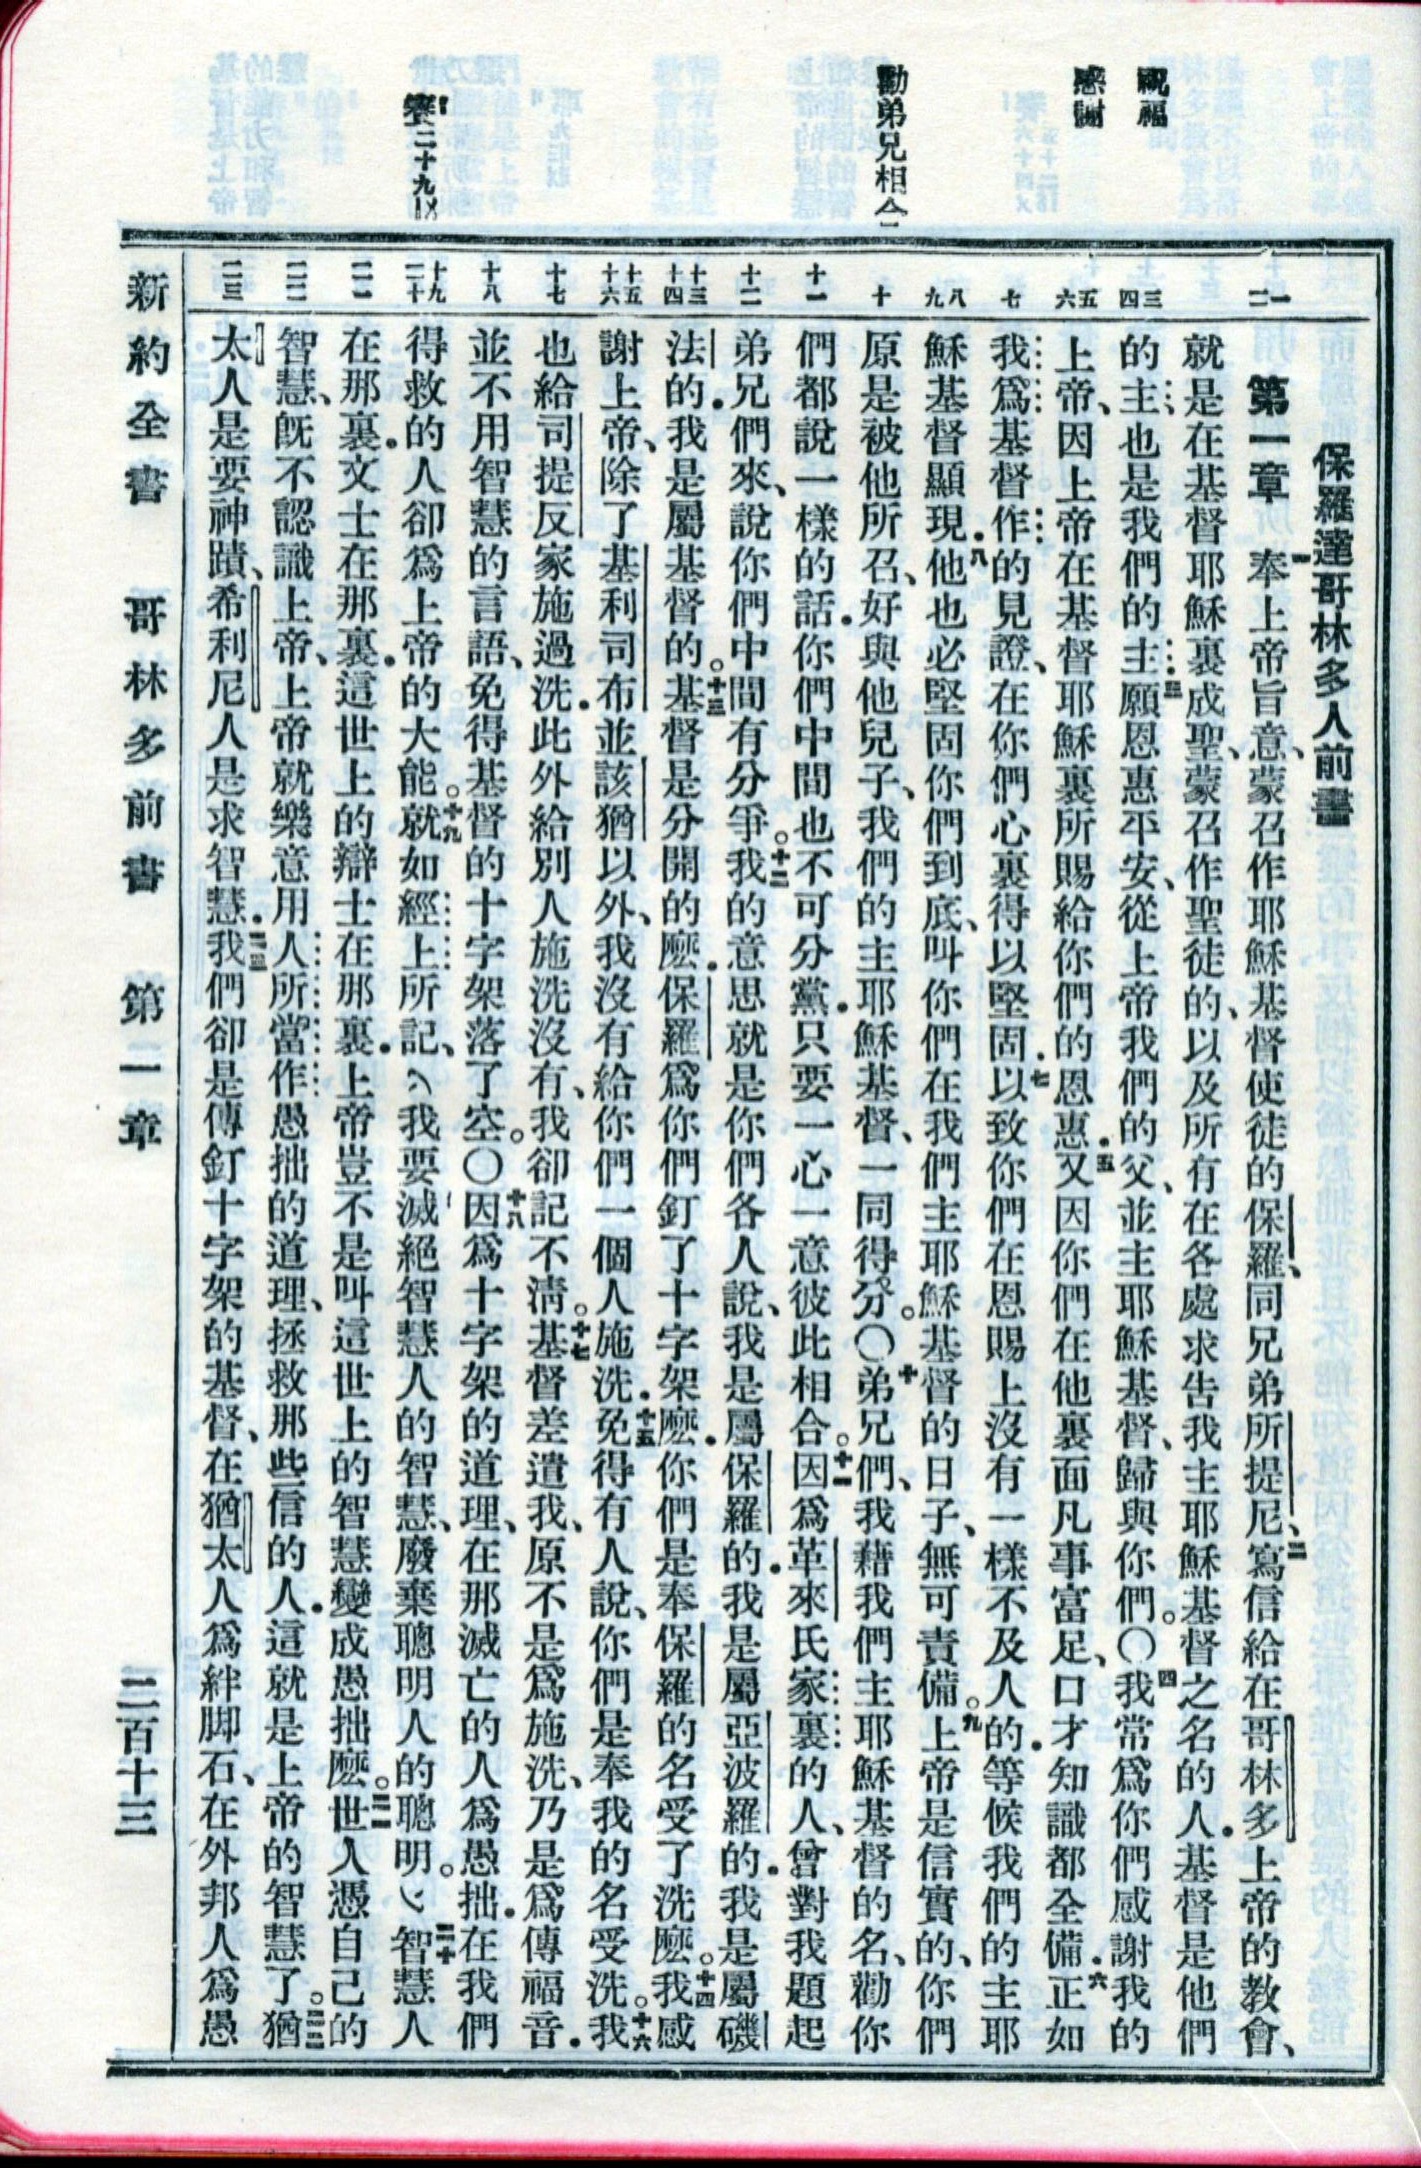 祝福
感謝
勸弟兄相合
賽二十九
保羅達哥林多人前書
一 二
第一章 一奉上帝旨意、蒙召作耶穌基督使徒的保羅、同兄弟所提尼、二寫信給在哥林多上帝的教會、
就是在基督耶穌裏成聖、蒙召作聖徒的、以及所有在各處求告我主耶穌基督之名的人．基督是他們
三 四
的主、也是我們的主．三願恩惠平安、從上帝我們的父、並主耶穌基督、歸與你們。〇四我常爲你們感謝我的
五 六
上帝、因上帝在基督耶穌裏所賜給你們的恩惠．五又因你們在他裏面凡事富足、口才知識都全備．六正如
七
我爲基督作的見證、在你們心裏得以堅固．七以致你們在恩賜上沒有一樣不及人的．等候我們的主耶
八 九
穌基督顯現．八他也必堅固你們到底、叫你們在我們主耶穌基督的日子、無可責備。九上帝是信實的、你們
十
原是被他所召、好與他兒子、我們的主耶穌基督、一同得分。〇十弟兄們、我藉我們主耶穌基督的名、勸你
十一
們都說一樣的話．你們中間也不可分黨．只要一心一意彼此相合。十一因爲革來氏家裏的人、曾對我題起
十二
弟兄們來、說你們中間有分爭。十二我的意思就是你們各人說、我是屬保羅的．我是屬亞波羅的．我是屬磯
十三 十四
法的．我是屬基督的。十三基督是分開的麼．保羅爲你們釘了十字架麼．你們是奉保羅的名受了洗麼。十四我感
十五 十六
謝上帝、除了基利司布並該猶以外、我沒有給你們一個人施洗．十五免得有人說、你們是奉我的名受洗。十六我
十七
也給司提反家施過洗．此外給別人施洗沒有、我卻記不清。十七基督差遣我、原不是爲施洗、乃是爲傳福音．
十八
並不用智慧的言語、免得基督的十字架落了空。〇十八因爲十字架的道理、在那滅亡的人爲愚拙．在我們
十九 二十
得救的人卻爲上帝的大能。十九就如經上所記、我要滅絕智慧人的智慧、廢棄聰明人的聰明。二十智慧人
二一
在那裏．文士在那裏．這世上的辯士在那裏．上帝豈不是叫這世上的智慧變成愚拙麼。二一世人憑自己的
二二
智慧、旣不認識上帝、上帝就樂意用人所當作愚拙的道理、拯救那些信的人．這就是上帝的智慧了。二二猶
二三
太人是要神蹟、希利尼人是求智慧．二三我們卻是傳釘十字架的基督、在猶太人爲絆脚石、在外邦人爲愚
新約全書 哥林多前書 第一章 二百十三